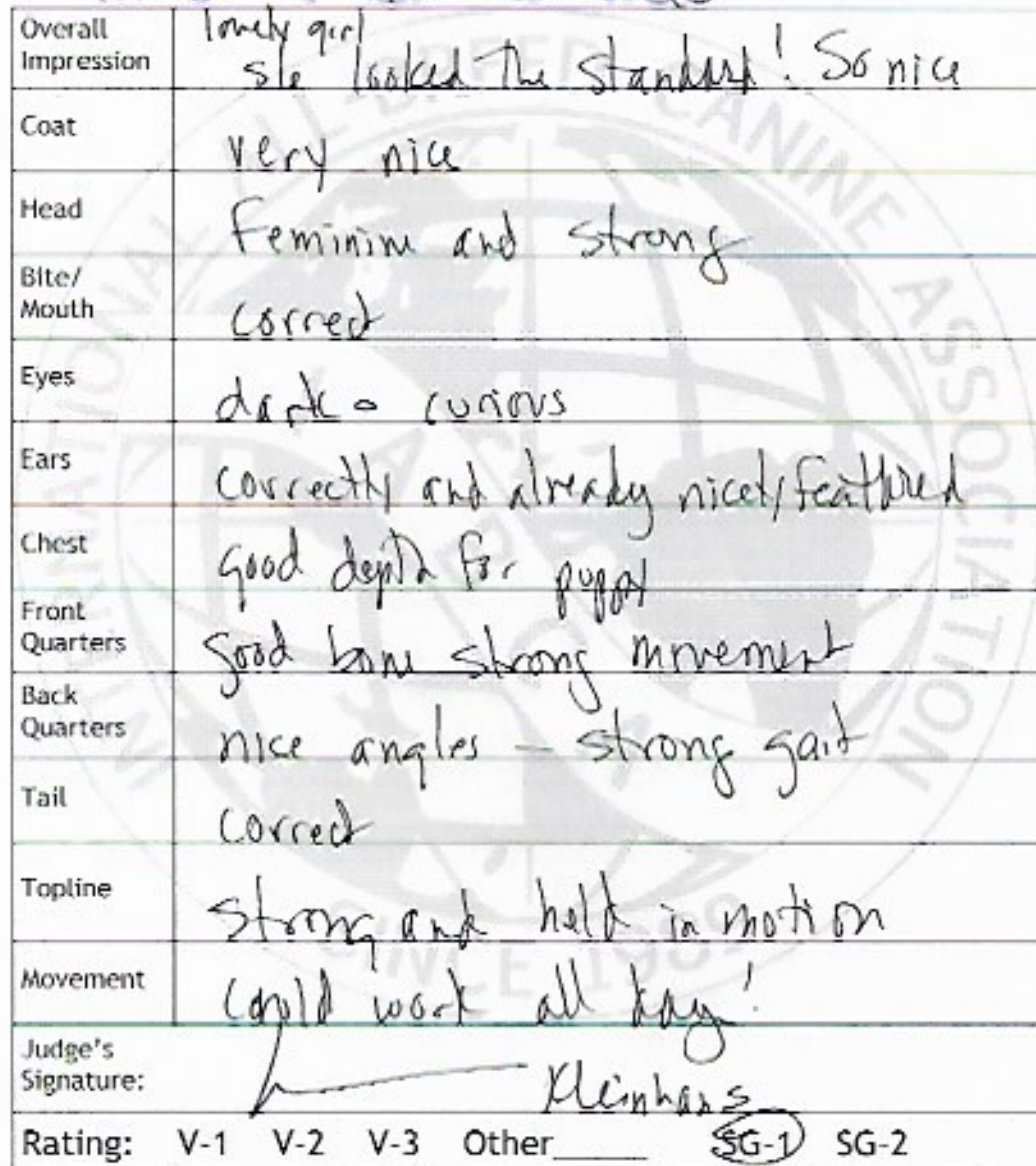 Overall Impression lovely girl
she looked the standard! So nice
Coat very nice
Head Feminine and strong
Bite/ Mouth correct
Eyes dark - curious
Ears correctly and already nicely feathered
Chest good depth for puppy
Front Quarters good bone strong movement
Back Quarters nice angles - strong gait
Tail correct
Topline strong and held in motion
Movement could work all day!
Judge's Signature: Kleinhans
Rating: V-1 V-2 V-3 Other____ SG-1 SG-2
INTERNATIONAL ALL BREED CANINE ASSOCIATION
SINCE 1989